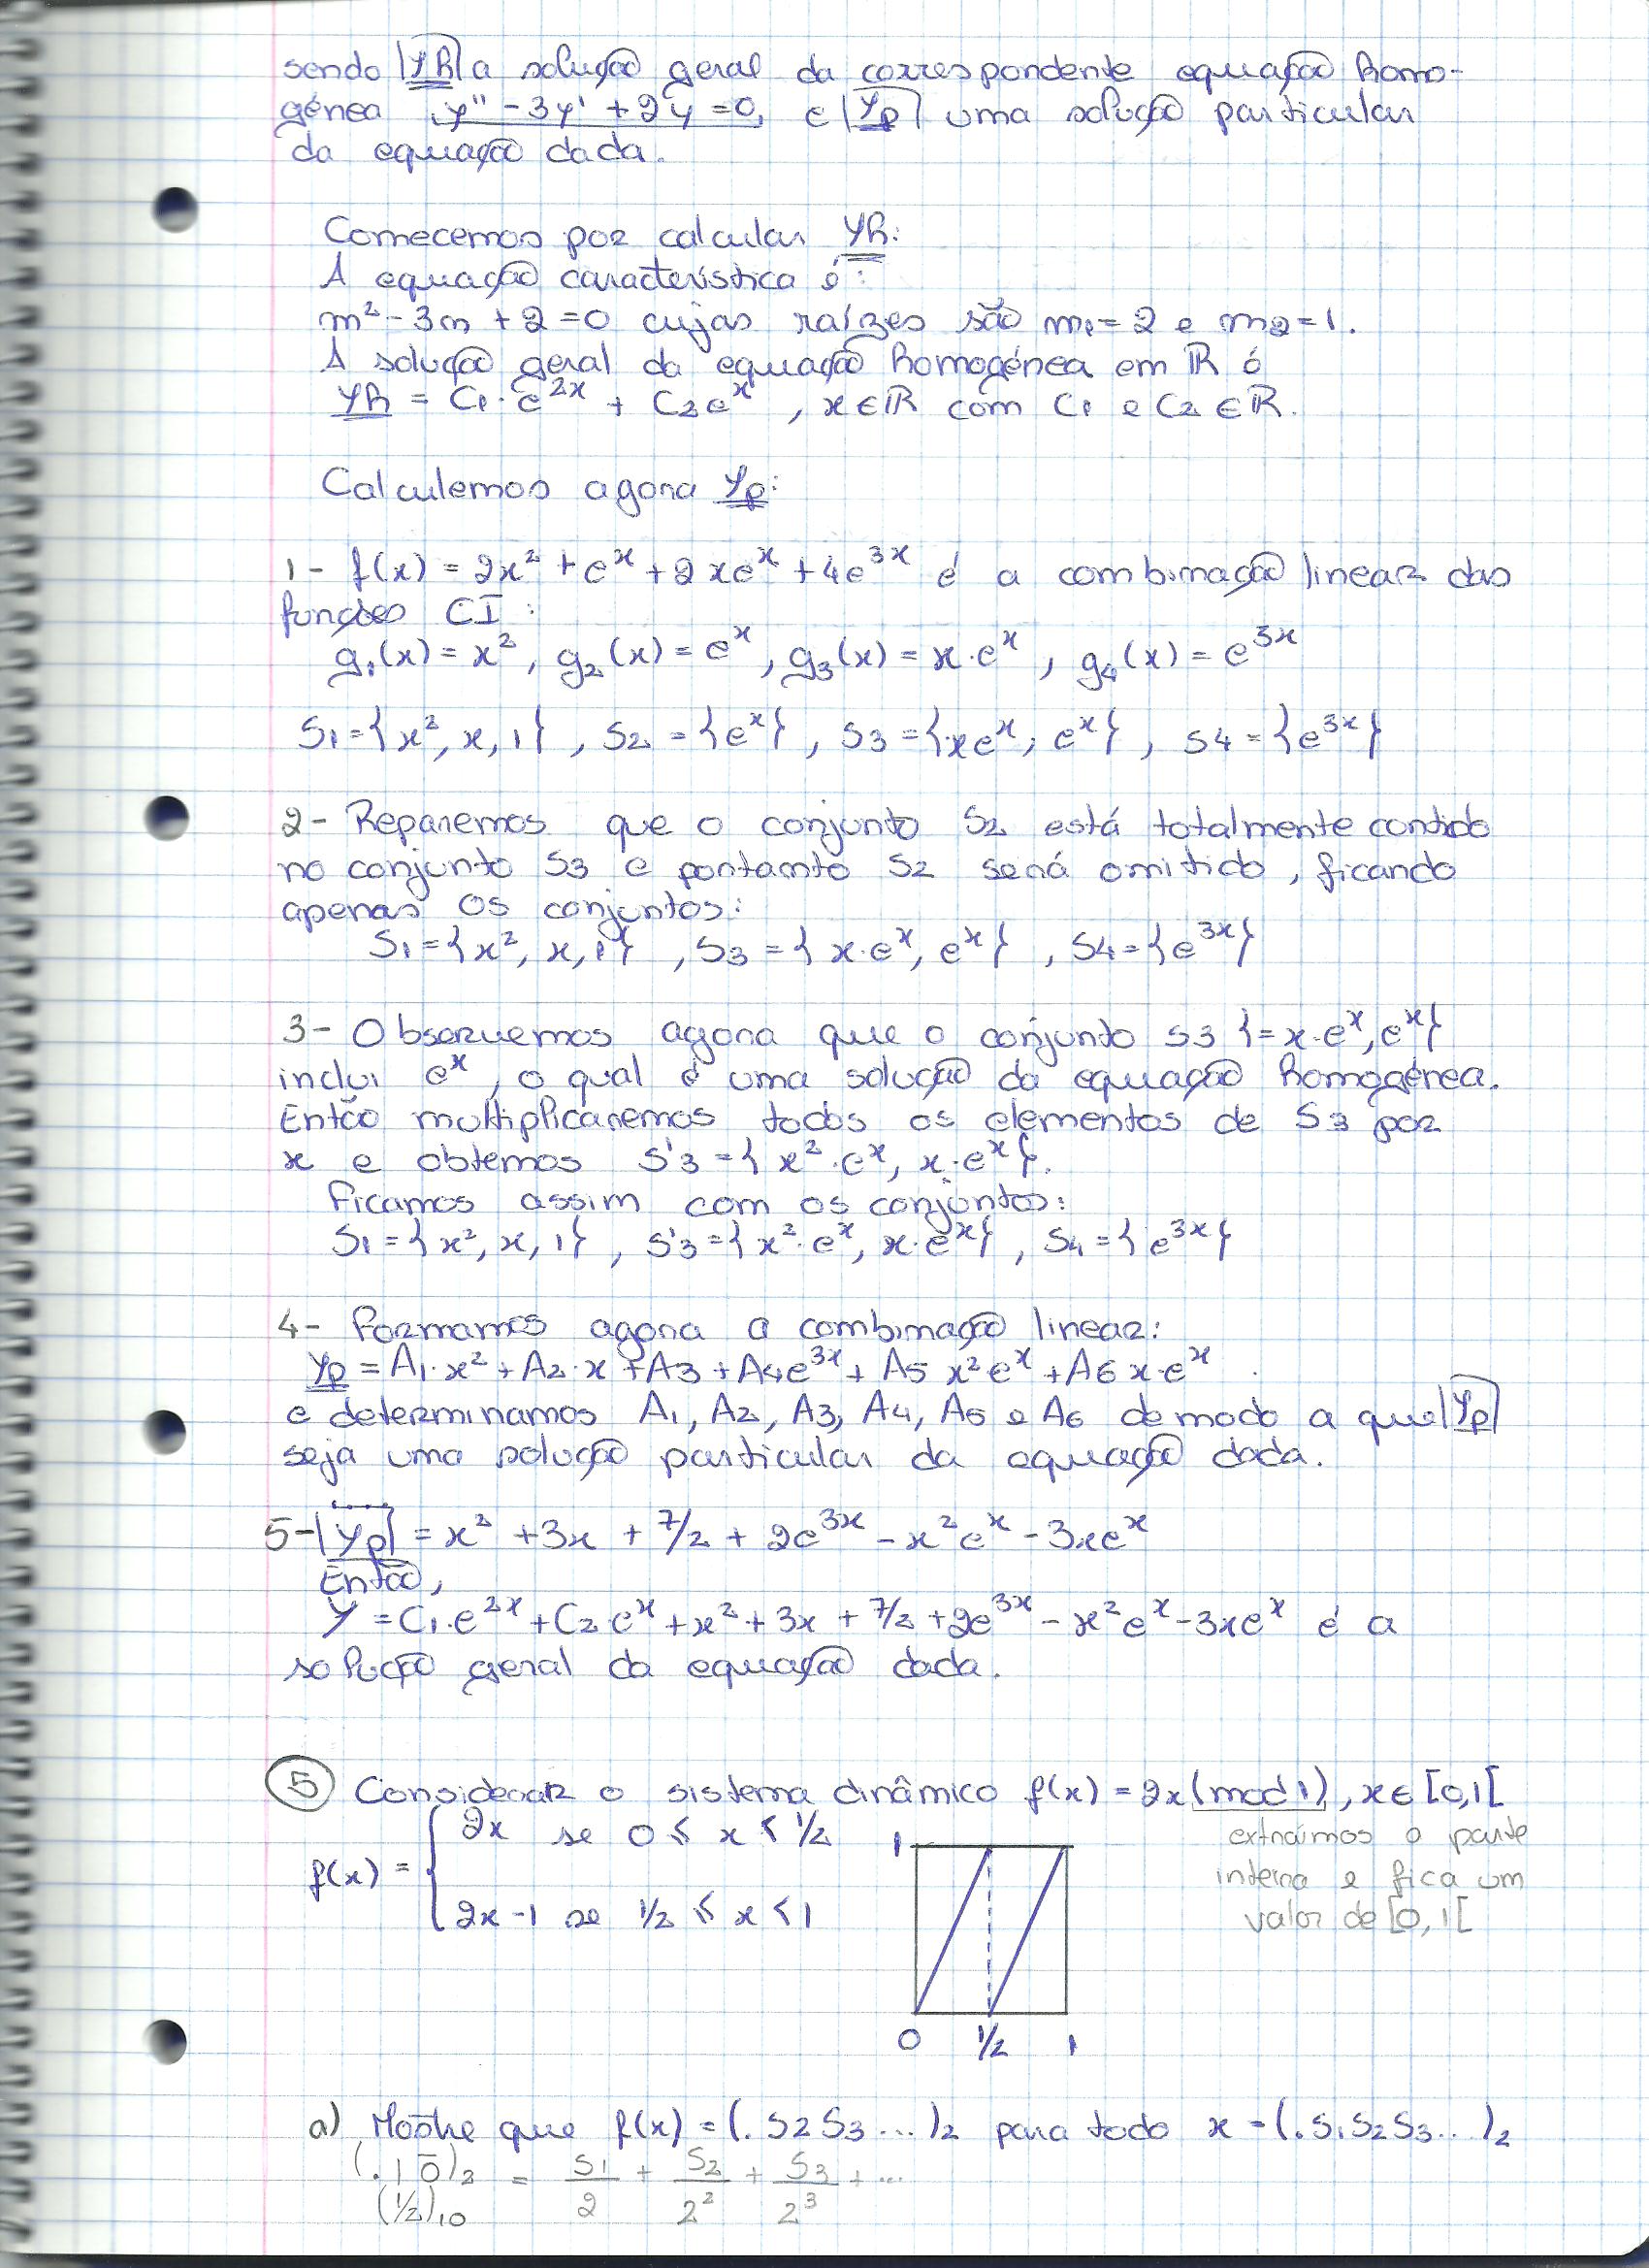 sendo yh a solução geral da correspondente equação homo-
génea y'' - 3y' + 2y = 0, e yp uma solução particular
da equação dada.
Comecemos por calcular yh:
A equação característica é:
m² - 3m + 2 = 0 cujas raízes são m1 = 2 e m2 = 1.
A solução geral da equação homogénea em ℝ é
yh = C1·e^{2x} + C2e^{x}, x∈ℝ com C1 e C2 ∈ ℝ.
Calculemos agora yp:
1- f(x) = 2x² + e^{x} + 2xe^{x} + 4e^{3x} é a combinação linear das
funções CI:
g1(x) = x², g2(x) = e^{x}, g3(x) = x·e^{x}, g4(x) = e^{3x}
S1 = {x², x, 1}, S2 = {e^{x}}, S3 = {xe^{x}, e^{x}}, S4 = {e^{3x}}
2- Reparemos que o conjunto S2 está totalmente contido
no conjunto S3 e portanto S2 será omitido, ficando
apenas os conjuntos:
S1 = {x², x, 1}, S3 = {x·e^{x}, e^{x}}, S4 = {e^{3x}}
3- Observemos agora que o conjunto S3 {= x·e^{x}, e^{x}}
inclui e^{x}, o qual é uma solução da equação homogénea.
Então multiplicaremos todos os elementos de S3 por
x e obtemos S'3 = {x²·e^{x}, x·e^{x}}.
Ficamos assim com os conjuntos:
S1 = {x², x, 1}, S'3 = {x²·e^{x}, x·e^{x}}, S4 = {e^{3x}}
4- Formamos agora a combinação linear:
yp = A1·x² + A2·x + A3 + A4e^{3x} + A5 x²e^{x} + A6 x·e^{x}
e determinamos A1, A2, A3, A4, A5 e A6 de modo a que yp
seja uma solução particular da equação dada.
5- yp = x² + 3x + 7/2 + 2e^{3x} - x²e^{x} - 3xe^{x}
Então,
y = C1·e^{2x} + C2·e^{x} + x² + 3x + 7/2 + 2e^{3x} - x²e^{x} - 3xe^{x} é a
solução geral da equação dada.
5 Considerar o sistema dinâmico f(x) = 2x (mod 1), x∈[0,1[
f(x) = { 2x se 0 ≤ x < 1/2
2x-1 se 1/2 ≤ x < 1
extraímos a parte
inteira e fica um
valor de [0,1[
1
0 1/2 1
a) Mostre que f(x) = (.S2S3...)2 para todo x = (.S1S2S3...)2
(.1 0̅)2 = S1/2 + S2/2² + S3/2³ + ...
(1/2)10